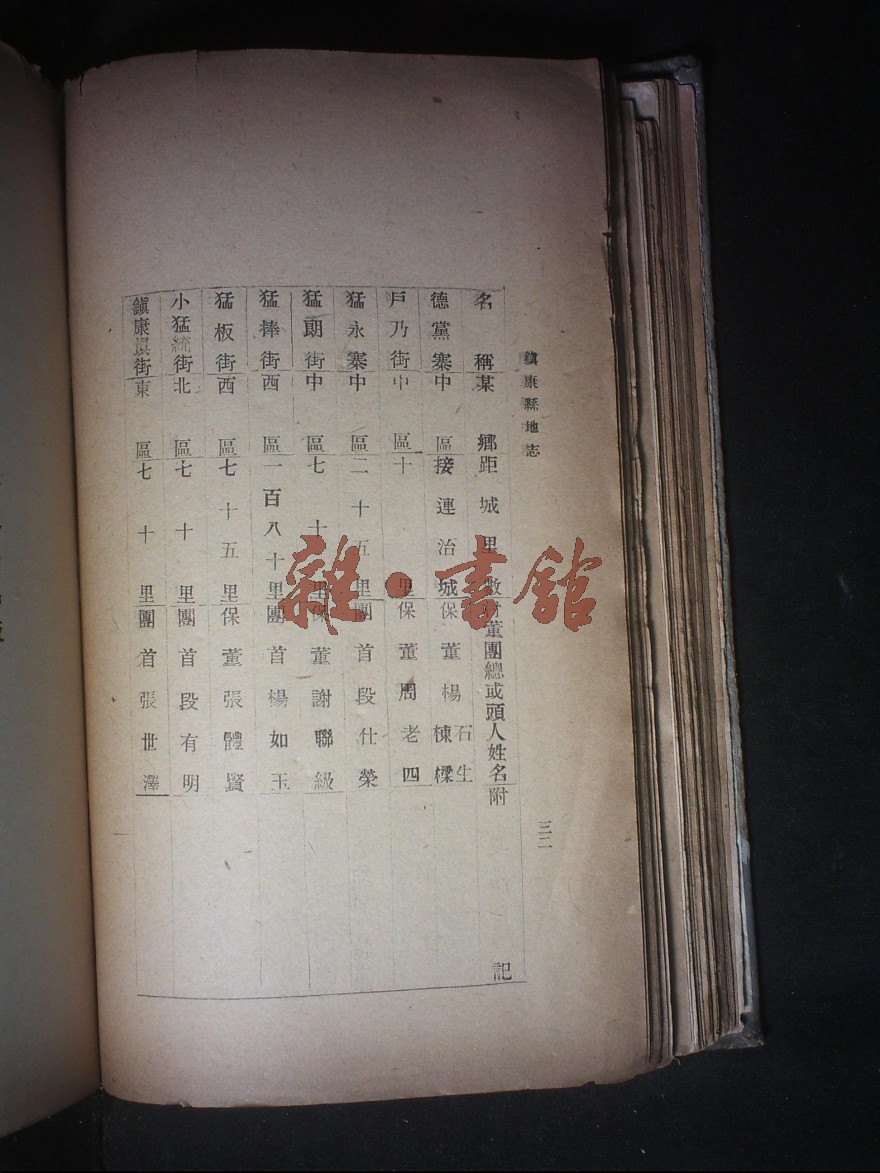 鎮康縣地志
三二
名稱 某鄉 距城里數 董團總或頭人姓名 附記
德黨寨 中區 接連治城 保董楊棟樑 石生
戶乃街 中區 十里 保董周老四
猛永寨 中區 二十五里 團首段仕榮
猛朗街 中區 七十里 保董謝聯級
猛捧街 西區 一百八十里 團首楊如玉
猛板街 西區 七十五里 保董張體賢
小猛統街 北區 七十里 團首段有明
鎮康壩街 東區 七十里 團首張世澤
雜·書館